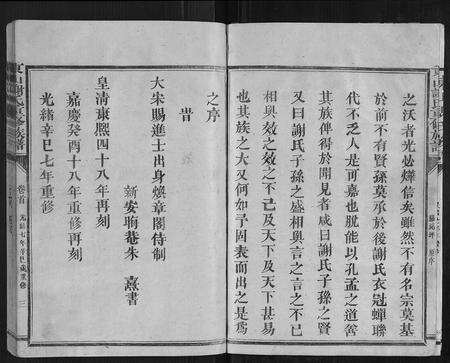 之沃者光必燁信矣雖然不有名宗莫基
於前不有賢孫莫承於後謝氏衣冠蟬聯
代不乏人是可嘉也脫能以孔孟之道啓
其族俾得於聞見者咸曰謝氏子孫之賢
又曰謝氏子孫之盛相與言之言之不已
及天下之不已及天下及天下甚易
也其族之大又何如予固表而出之是爲
之序
昔
大宋賜進士出身煥章閣侍制
新安晦菴朱熹書
皇清康熙四十八年再刻
嘉慶癸酉十八年重修再刻
光緒辛巳七年重修
東山謝氏重修族譜
卷首
光緒七年辛巳歲重修
三